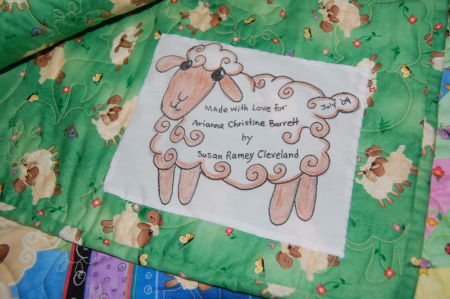 Made with Love for
Arianna Christine Barrett
by
Susan Ramey Cleveland
July 09